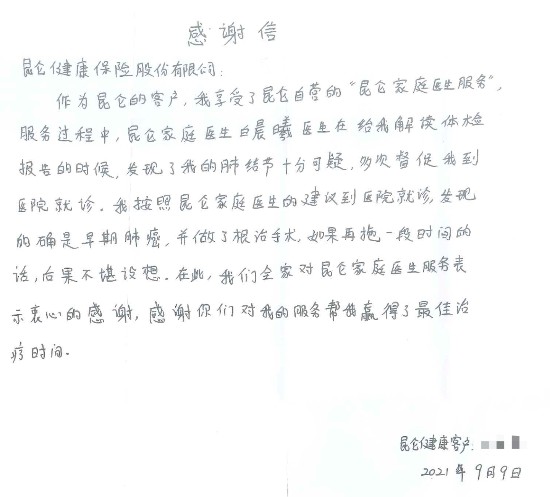 感谢信
昆仑健康保险股份有限公司：
作为昆仑的客户，我享受了昆仑自营的“昆仑家庭医生服务”，
服务过程中，昆仑家庭医生白晨曦医生在给我解读体检
报告的时候，发现了我的肺结节十分可疑，多次督促我到
医院就诊。我按照昆仑家庭医生的建议到医院就诊，发现
的确是早期肺癌，并做了根治手术，如果再拖一段时间的
话，后果不堪设想。在此，我们全家对昆仑家庭医生服务表
示衷心的感谢，感谢你们对我的服务帮我赢得了最佳治
疗时间。
昆仑健康客户：
2021年9月9日